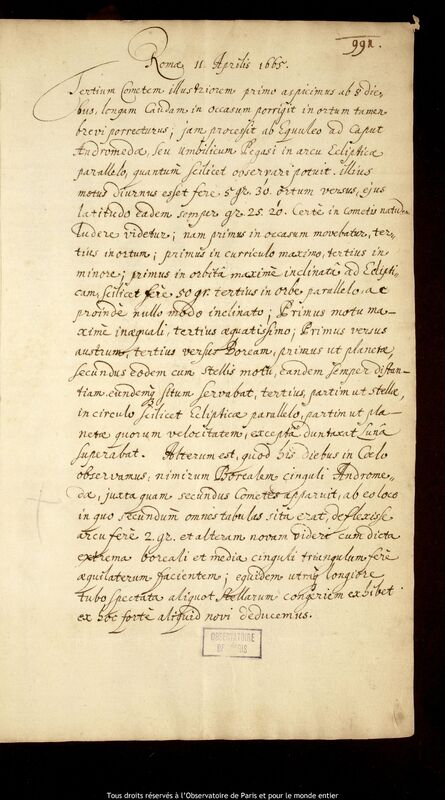 991.
Romæ 11 Aprilis 1665.
Tertium Cometem illustriorem primo aspicimus ab 8 die-
bus, longam Caudam in occasum porrigit in ortum tamen
brevi porrecturus; jam processit ab Equuleo ad Caput
Andromedæ, seu umbilicum Pegasi in arcu Eclipticæ
parallelo, quantum scilicet observari potuit. illius
motus diurnus esset fere 5 gr. 30. ortum versus, ejus
latitudo eadem semper gr. 25. 20. Certè in cometis natura
ludere videtur; nam primus in occasum movebatur, ter-
tius in ortum; primus in curriculo maximo, tertius in
minore; primus in orbita maximè inclinata ad Eclipti-
cam, scilicet fere 50 gr. tertius in orbe parallelo, ac
proinde nullo modo inclinato; Primus motu ma-
ximè inæquali, tertius æquatissimo; Primus versus
austrum, tertius versus Boream, primus ut planeta,
secundus eodem cum stellis motu, eandem semper distan-
tiam eundemq situm servabat, tertius, partim ut stellæ,
in circulo scilicet Eclipticæ parallelo, partim ut pla-
netæ quorum velocitatem, excepta duntaxat Luna
superabat. Alterum est, quod his diebus in Coelo
observamus, nimirum Borealem cinguli Androme-
dæ, juxta quam secundus Cometes apparuit, ab eo loco
in quo secundum omnes tabulas sita erat, deflexisse
arcu fere 2. gr. et alteram novam videri cum dicta
extrema boreali et media cinguli triangulum fere
æquilaterum facientem; equidem utraq longiore
tubo spectata aliquot Stellarum congeriem exhibet
ex hoc fortè aliquid novi deducemus.
OBSERVATOIRE
DE PARIS
Tous droits réservés à l'Observatoire de Paris et pour le monde entier